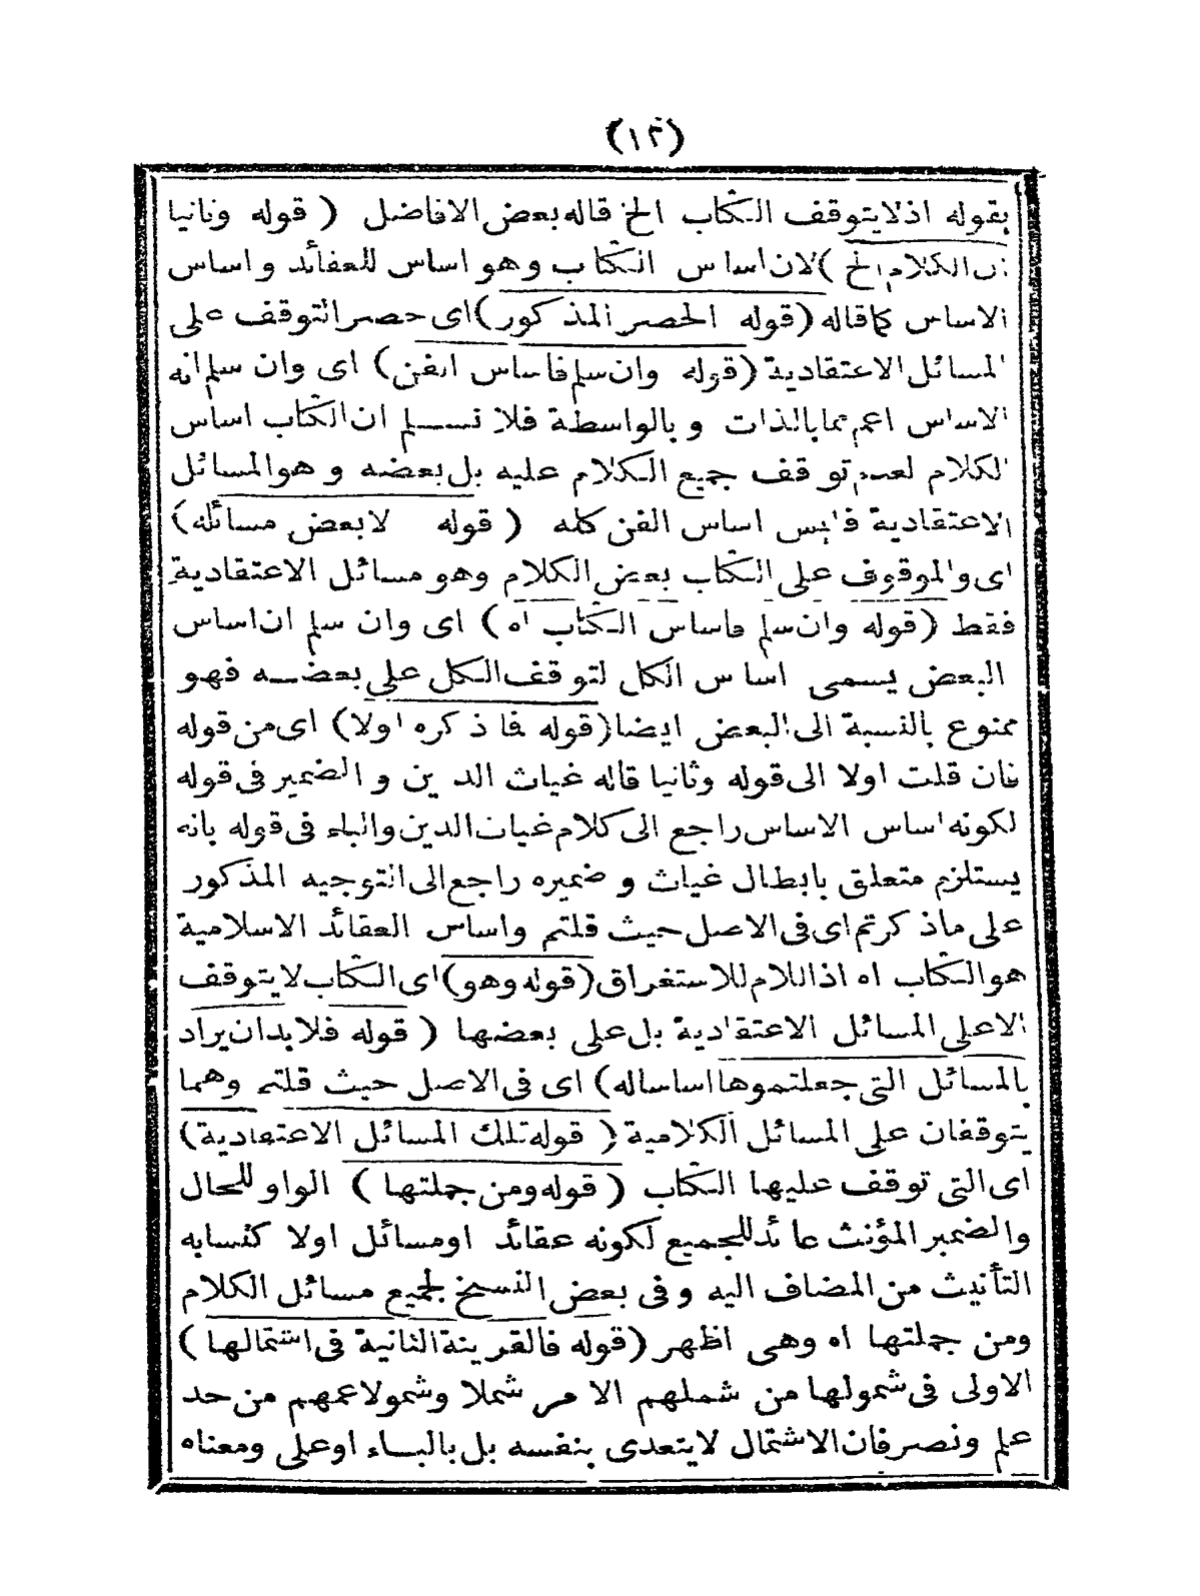 (١٢)
بقوله اذ لا يتوقف الكتاب الخ قاله بعض الافاضل ( قوله وثانيا
ان الكلام الخ ) لان اساس الكتاب وهو اساس للعقائد واساس
الاساس كما قاله ( قوله الحصر المذكور ) اى حصر التوقف على
المسائل الاعتقادية ( قوله وان سلم فاساس الفن ) اى وان سلم انه
الاساس اعم مما بالذات وبالواسطة فلا نسلم ان الكتاب اساس
الكلام لعدم توقف جميع الكلام عليه بل بعضه وهو المسائل
الاعتقادية فليس اساس الفن كله ( قوله لا بعض مسائله )
اى والموقوف على الكتاب بعض الكلام وهو مسائل الاعتقادية
فقط ( قوله وان سلم فاساس الكتاب اه ) اى وان سلم ان اساس
البعض يسمى اساس الكل لتوقف الكل على بعضه فهو
ممنوع بالنسبة الى البعض ايضا ( قوله فما ذكره اولا ) اى من قوله
فان قلت اولا الى قوله وثانيا قاله غياث الدين والضمير فى قوله
لكونه اساس الاساس راجع الى كلام غياث الدين والباء فى قوله بانه
يستلزم متعلق بابطال غياث وضميره راجع الى التوجيه المذكور
على ما ذكرتم اى فى الاصل حيث قلتم واساس العقائد الاسلامية
هو الكتاب اه اذ اللام للاستغراق ( قوله وهو ) اى الكتاب لا يتوقف
الا على المسائل الاعتقادية بل على بعضها ( قوله فلا بد ان يراد
بالمسائل التى جعلتموها اساساله ) اى فى الاصل حيث قلتم وهما
يتوقفان على المسائل الكلامية ( قوله تلك المسائل الاعتقادية )
اى التى توقف عليها الكتاب ( قوله ومن جملتها ) الواو للحال
والضمير المؤنث عائد للجميع لكونه عقائد او مسائل اولا كتسابه
التأنيث من المضاف اليه وفى بعض النسخ لجميع مسائل الكلام
ومن جملتها اه وهى اظهر ( قوله فالقرينة الثانية فى اشتمالها )
الاولى فى شمولها من شملهم الامر شملا وشمولا عمهم من حد
علم ونصر فان الاشتمال لا يتعدى بنفسه بل بالباء او على ومعناه